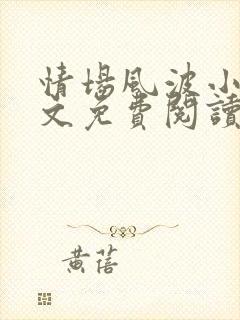 情場風波小
文免費閱讀
黃蓓